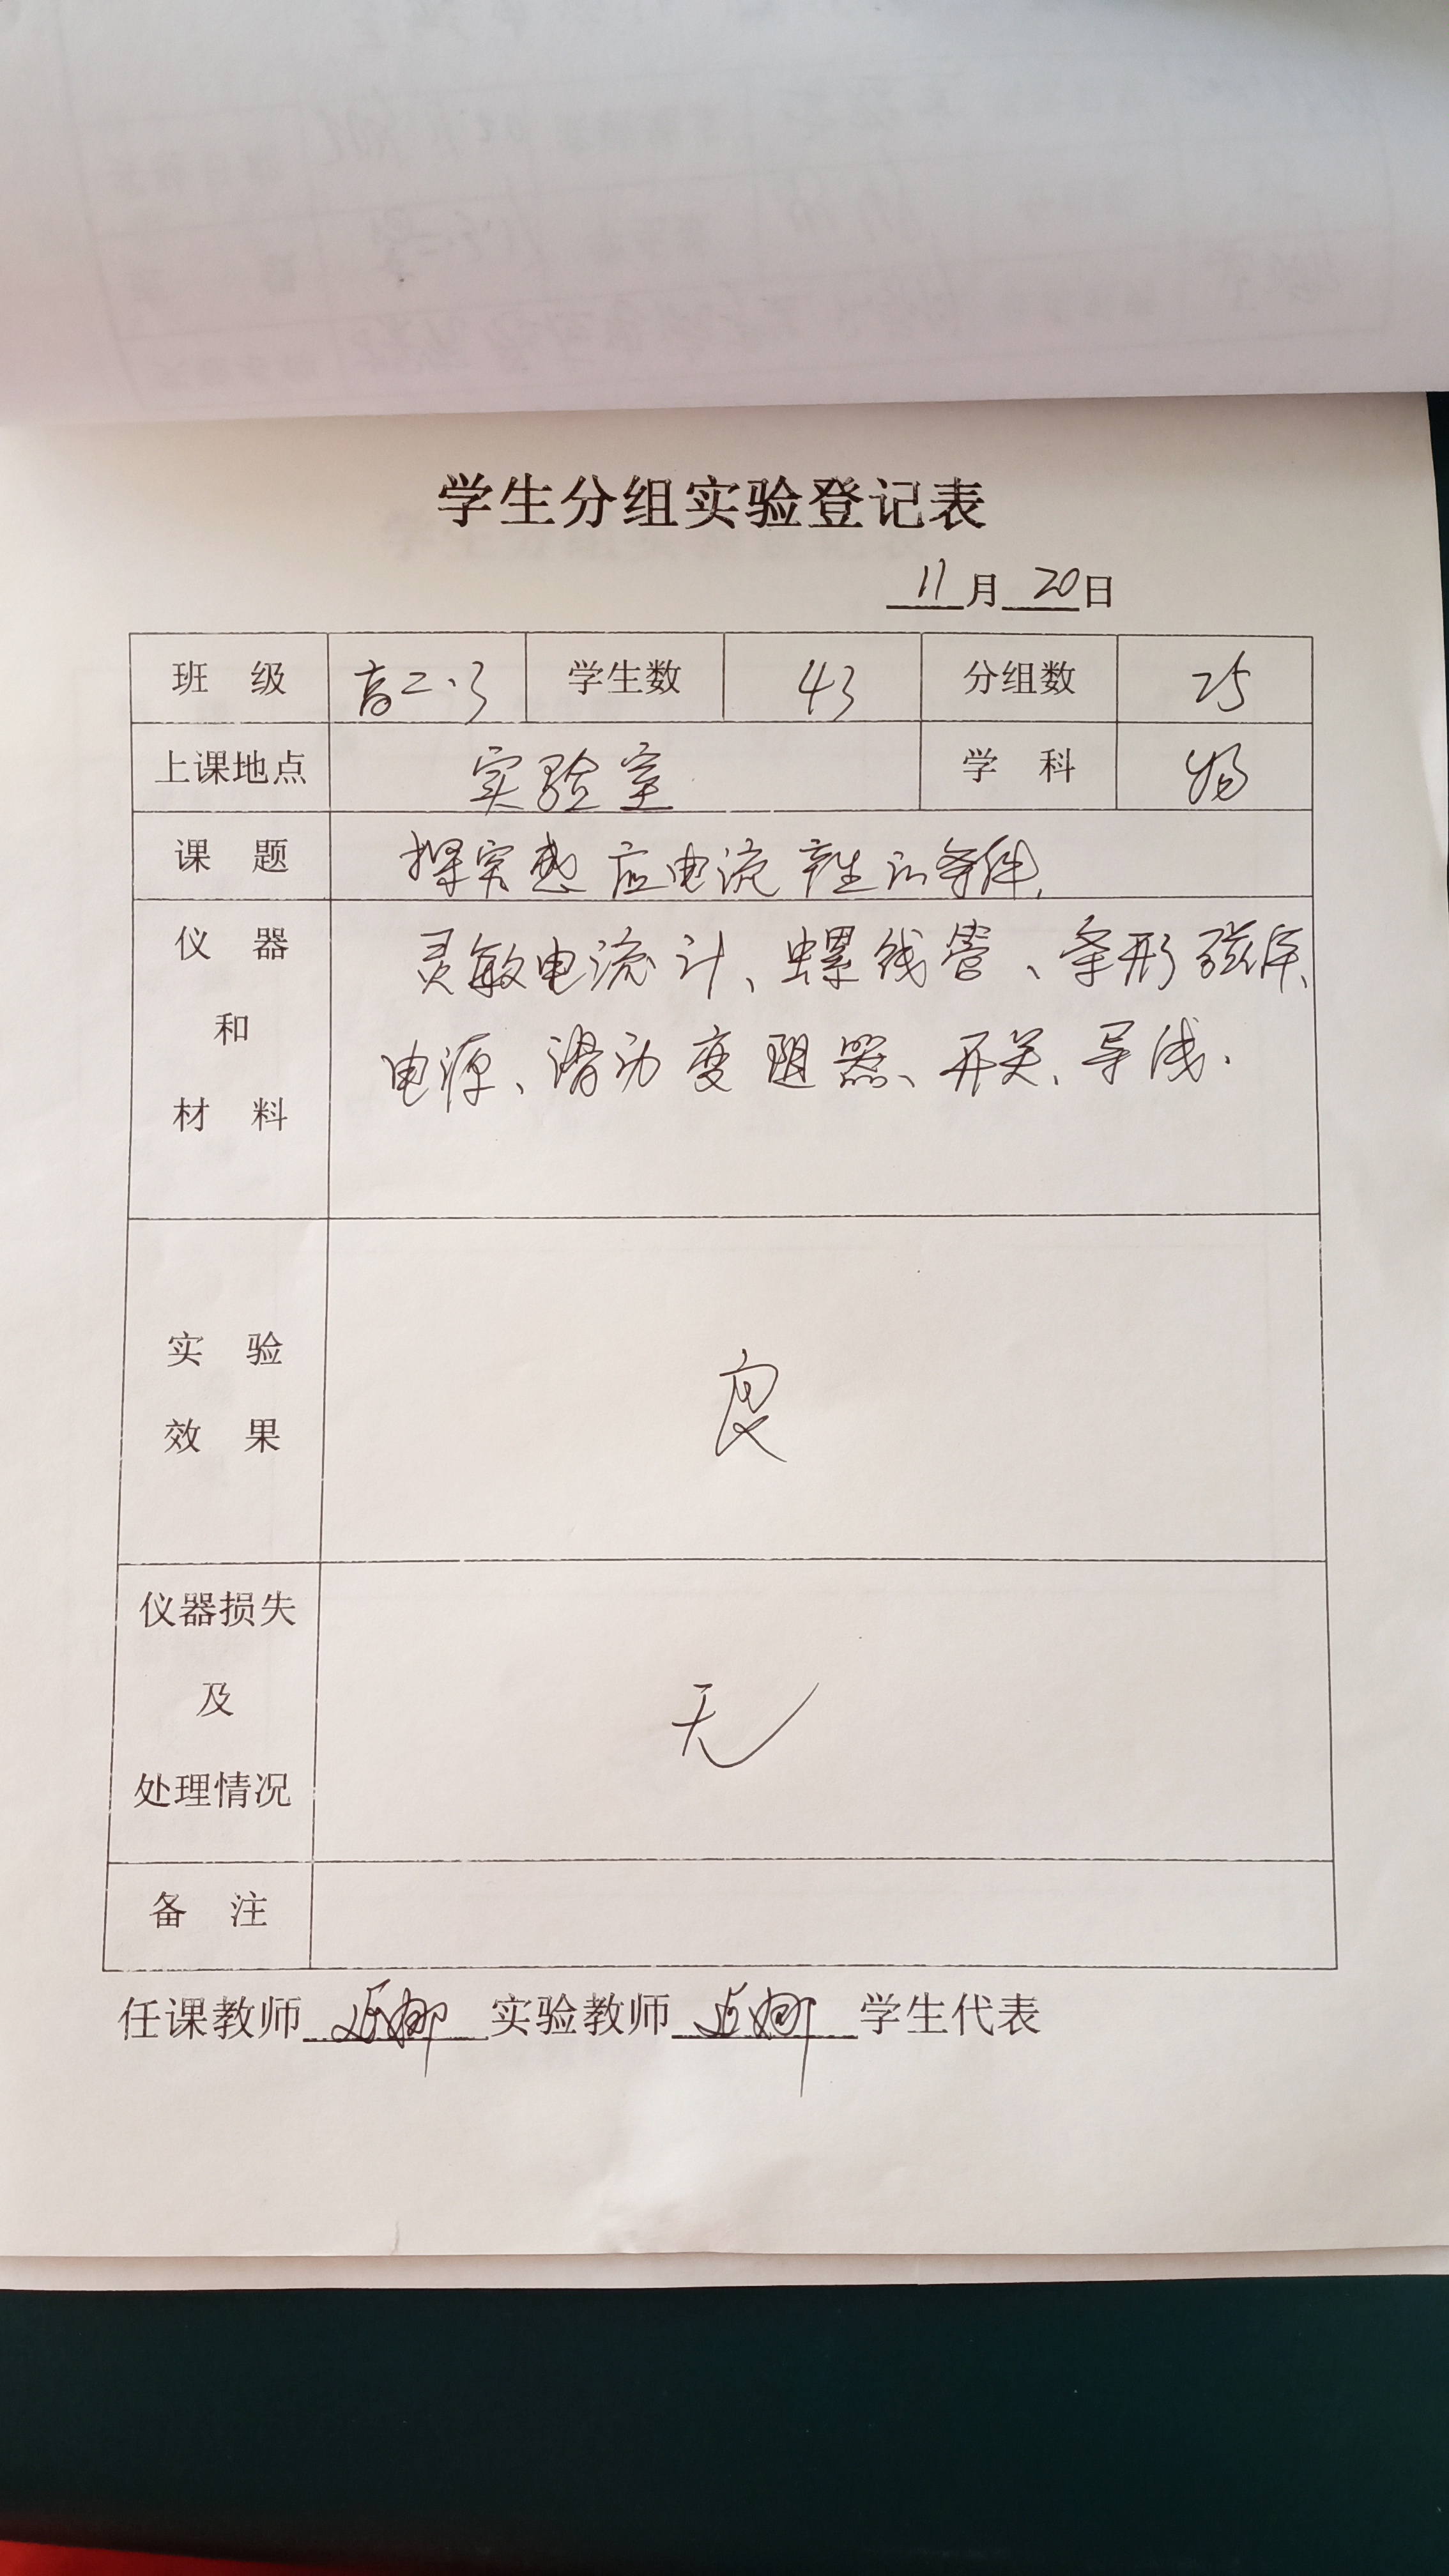 学生分组实验登记表
11月20日
班 级 高二.3 学生数 43 分组数 25
上课地点 实验室 学 科 物
课 题 探究感应电流产生的条件.
仪 器 和 材 料
灵敏电流计、螺线管、条形磁体、
电源、滑动变阻器、开关、导线.
实 验 效 果 良
仪器损失 及 处理情况 无
备 注
任课教师 实验教师 学生代表